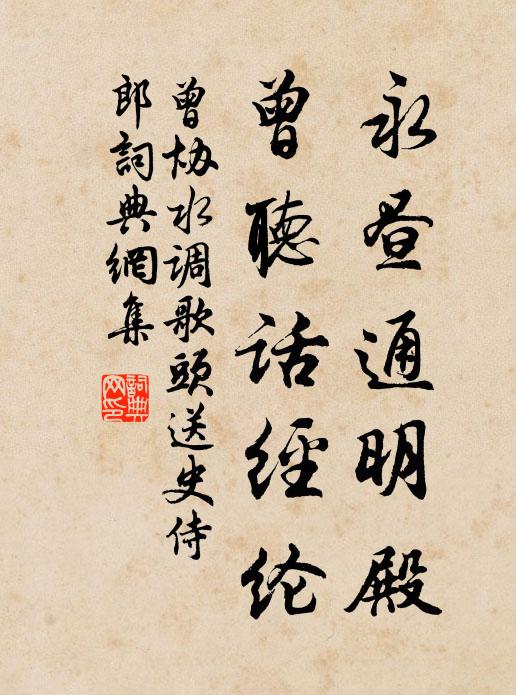 永昼通明殿
曾聽话經纶
曾协水调歌頭送史侍
郎詞典網集
詞典
网印